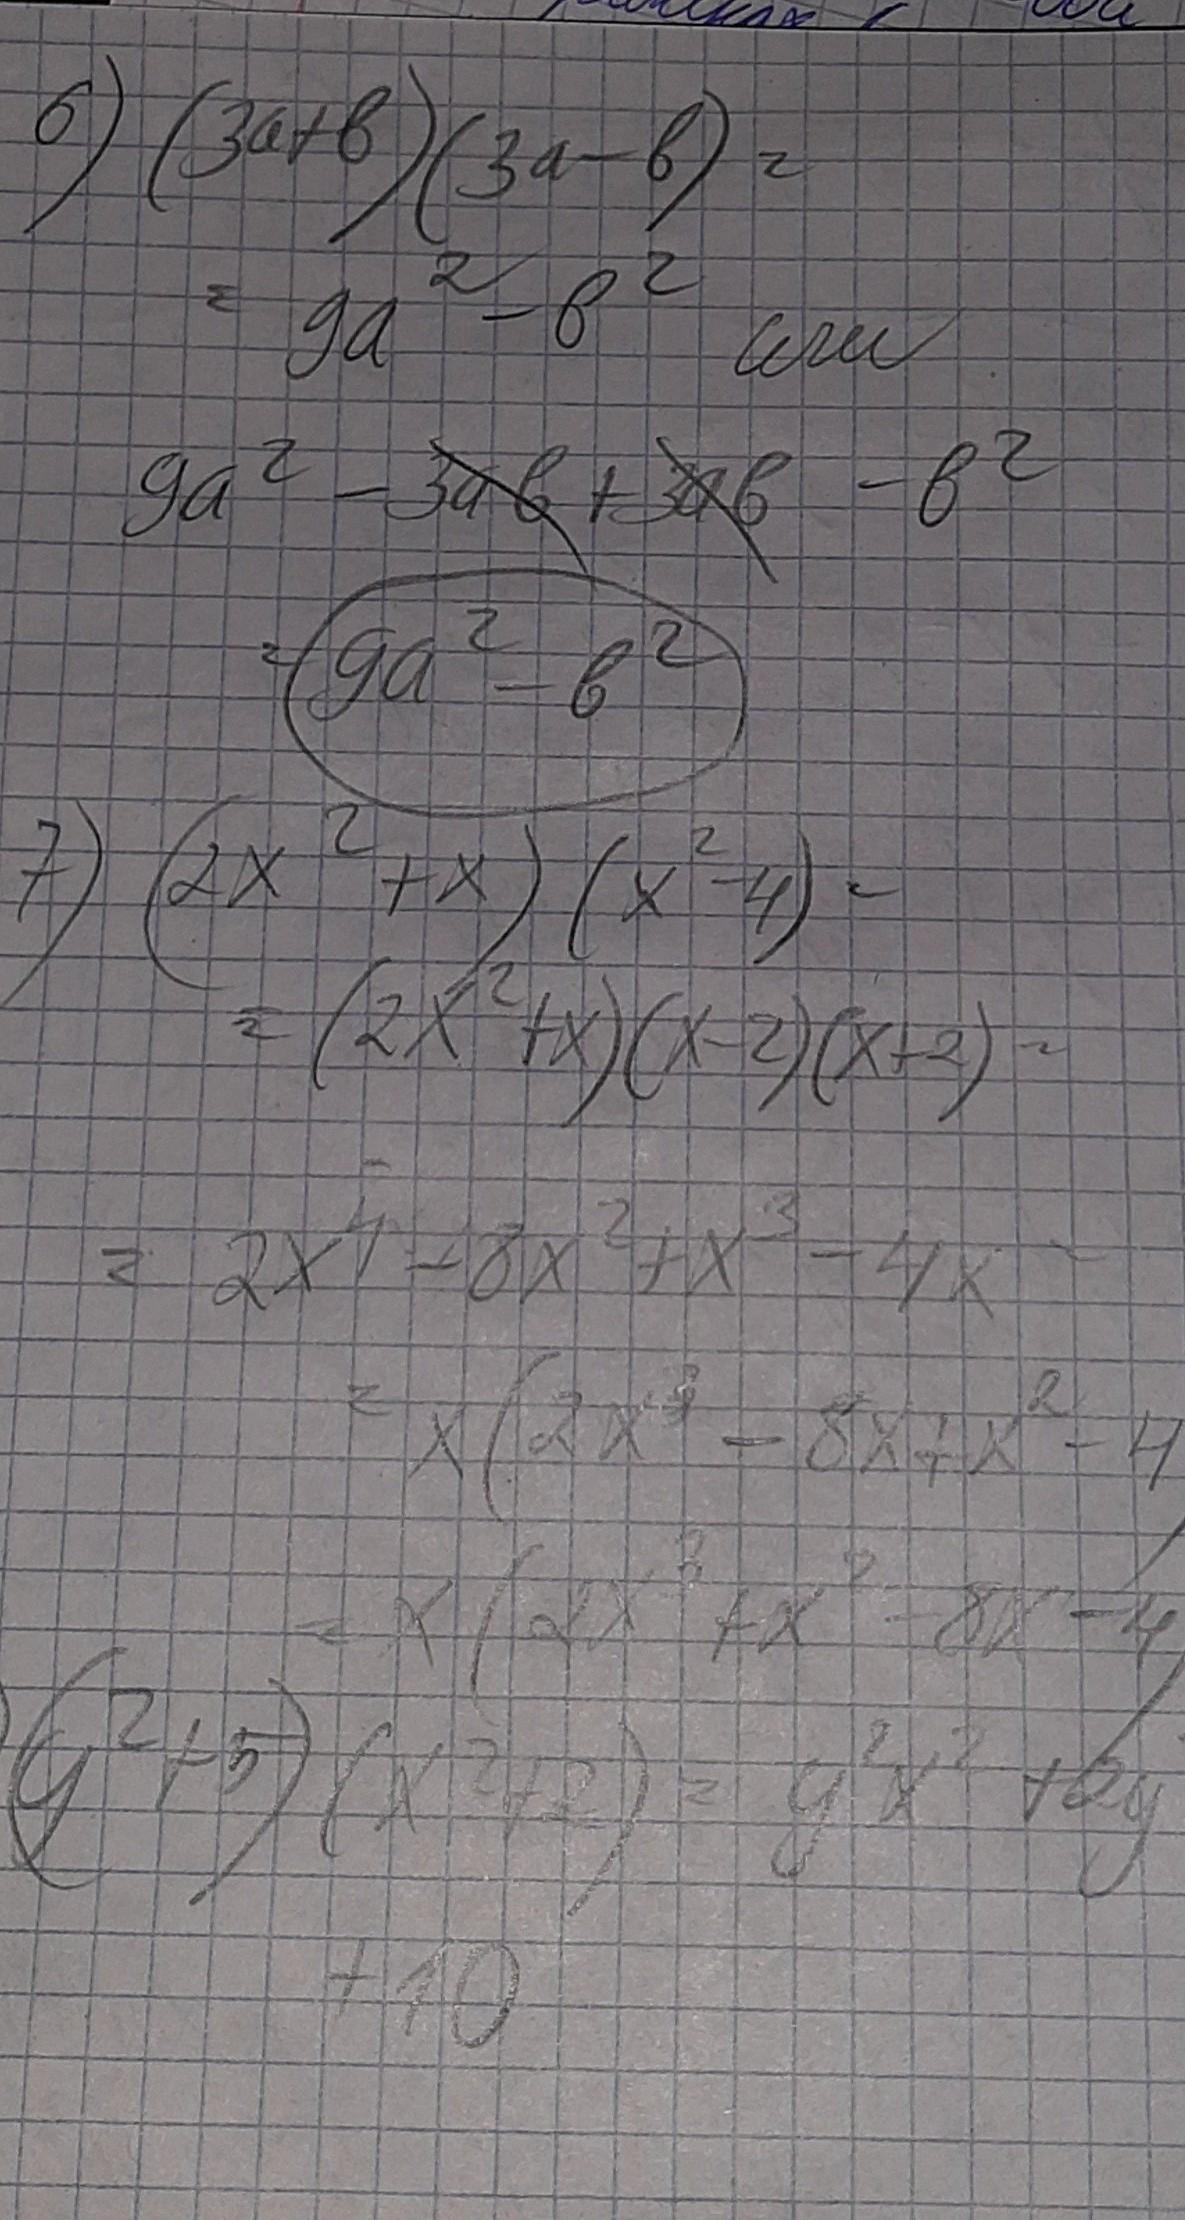 6) (3a+в)(3a-в)=
= 9a² - в² или
9a² - 3aв + 3aв - в²
= 9a² - в²
7) (2x² + x)(x² - 4) -
= (2x² + x)(x - 2)(x + 2) -
= 2x⁴ - 8x² + x³ - 4x -
= x(2x³ - 8x + x² - 4
= x(2x³ + x² - 8x - 4)
) (y² + 5)(x² + 2) = y²x² + 2y
+ 10